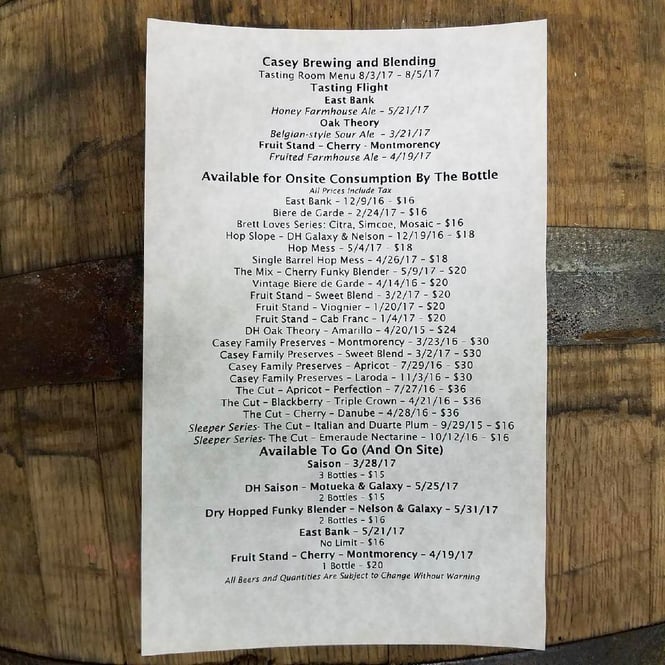 Casey Brewing and Blending
Tasting Room Menu 8/3/17 - 8/5/17
Tasting Flight
East Bank
Honey Farmhouse Ale - 5/21/17
Oak Theory
Belgian-style Sour Ale - 3/21/17
Fruit Stand - Cherry - Montmorency
Fruited Farmhouse Ale - 4/19/17
Available for Onsite Consumption By The Bottle
All Prices Include Tax
East Bank - 12/9/16 - $16
Biere de Garde - 2/24/17 - $16
Brett Loves Series: Citra, Simcoe, Mosaic - $16
Hop Slope - DH Galaxy & Nelson - 12/19/16 - $18
Hop Mess - 5/4/17 - $18
Single Barrel Hop Mess - 4/26/17 - $18
The Mix - Cherry Funky Blender - 5/9/17 - $20
Vintage Biere de Garde - 4/14/16 - $20
Fruit Stand - Sweet Blend - 3/2/17 - $20
Fruit Stand - Viognier - 1/20/17 - $20
Fruit Stand - Cab Franc - 1/4/17 - $20
DH Oak Theory - Amarillo - 4/20/15 - $24
Casey Family Preserves - Montmorency - 3/23/16 - $30
Casey Family Preserves - Sweet Blend - 3/2/17 - $30
Casey Family Preserves - Apricot - 7/29/16 - $30
Casey Family Preserves - Laroda - 11/3/16 - $30
The Cut - Apricot - Perfection - 7/27/16 - $36
The Cut - Blackberry - Triple Crown - 4/21/16 - $36
The Cut - Cherry - Danube - 4/28/16 - $36
Sleeper Series- The Cut - Italian and Duarte Plum - 9/29/15 - $16
Sleeper Series- The Cut - Emeraude Nectarine - 10/12/16 - $16
Available To Go (And On Site)
Saison - 3/28/17
3 Bottles - $15
DH Saison - Motueka & Galaxy - 5/25/17
2 Bottles - $15
Dry Hopped Funky Blender - Nelson & Galaxy - 5/31/17
2 Bottles - $16
East Bank - 5/21/17
No Limit - $16
Fruit Stand - Cherry - Montmorency - 4/19/17
1 Bottle - $20
All Beers and Quantities Are Subject to Change Without Warning